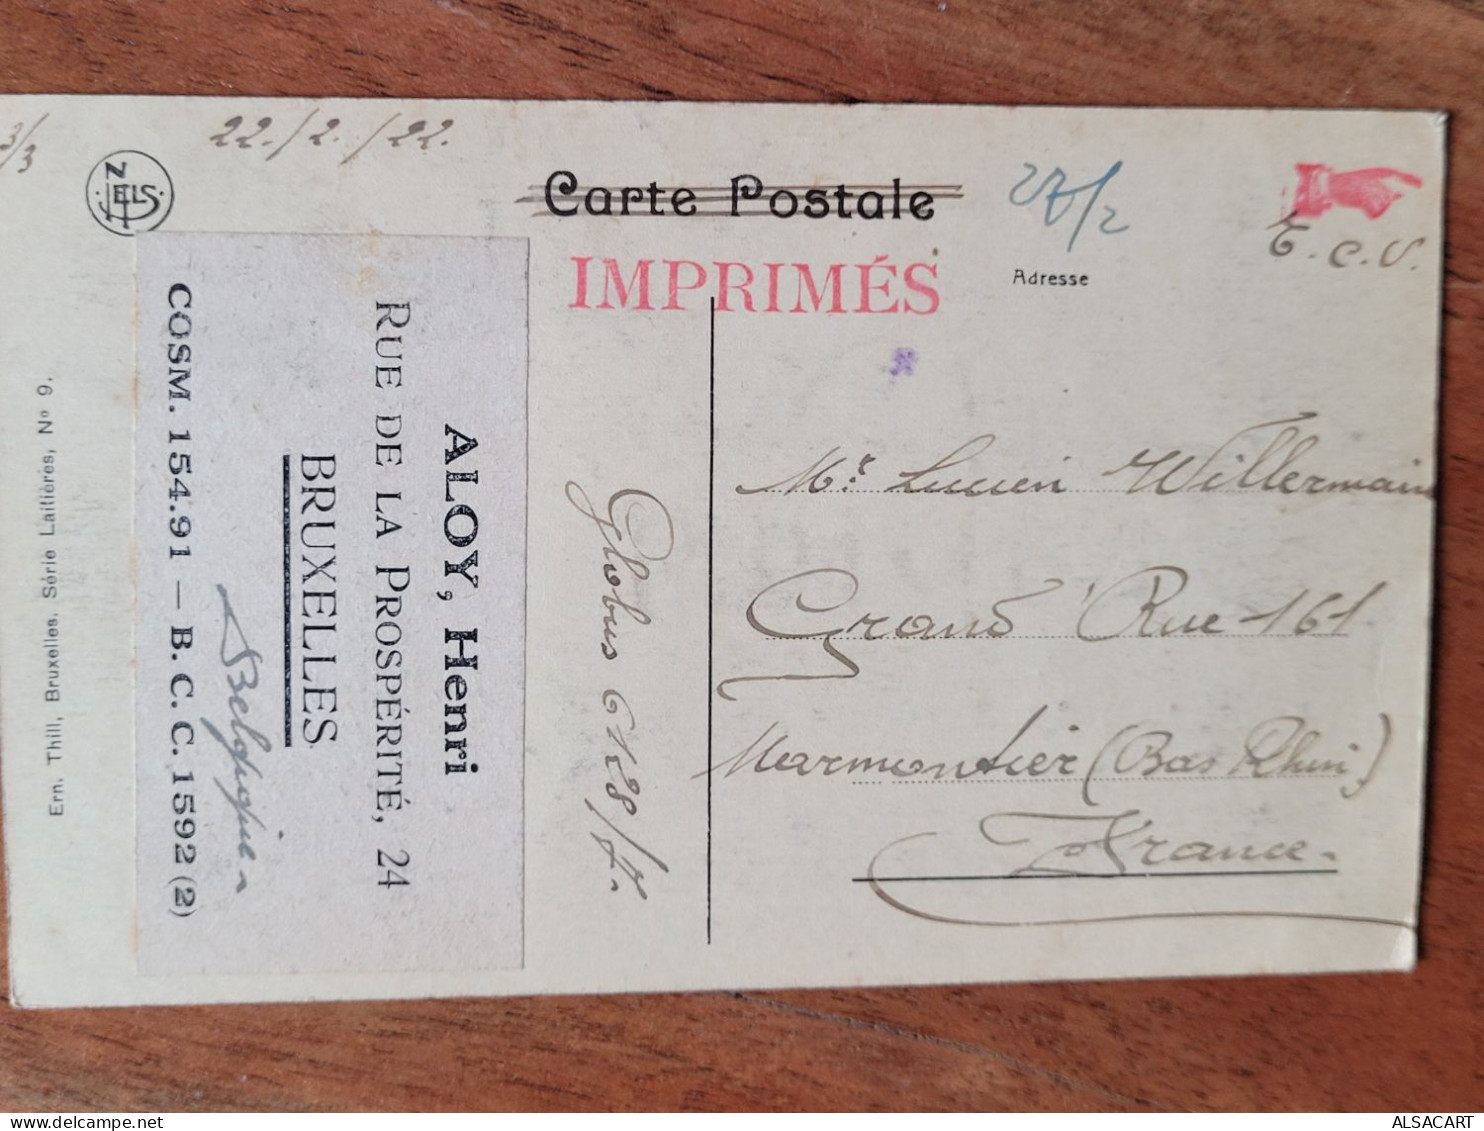 3/3
22./2./22.
NELS
Carte Postale
IMPRIMÉS
27/2
T.C.V.
Adresse
Mr. Lucien Willermain
Grand'Rue 161
Marmontier (Bas Rhin)
France.
Globus 6128/7.
ALOY, Henri
RUE DE LA PROSPÉRITÉ, 24
BRUXELLES
Belgique
COSM. 154.91 — B. C. C. 1592 (2)
Ern. Thill, Bruxelles. Série Laitières, No 9.
ALSACART